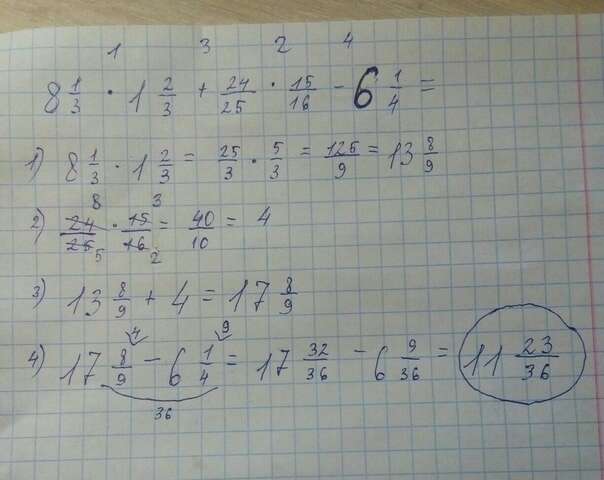 1 3 2 4
8 1/3 · 1 2/3 + 24/25 · 15/16 - 6 1/4 =
1) 8 1/3 · 1 2/3 = 25/3 · 5/3 = 125/9 = 13 8/9
8 3
2) 24/25 · 15/16 = 40/10 = 4
5 2
3) 13 8/9 + 4 = 17 8/9
4 9
4) 17 8/9 - 6 1/4 = 17 32/36 - 6 9/36 = 11 23/36
36